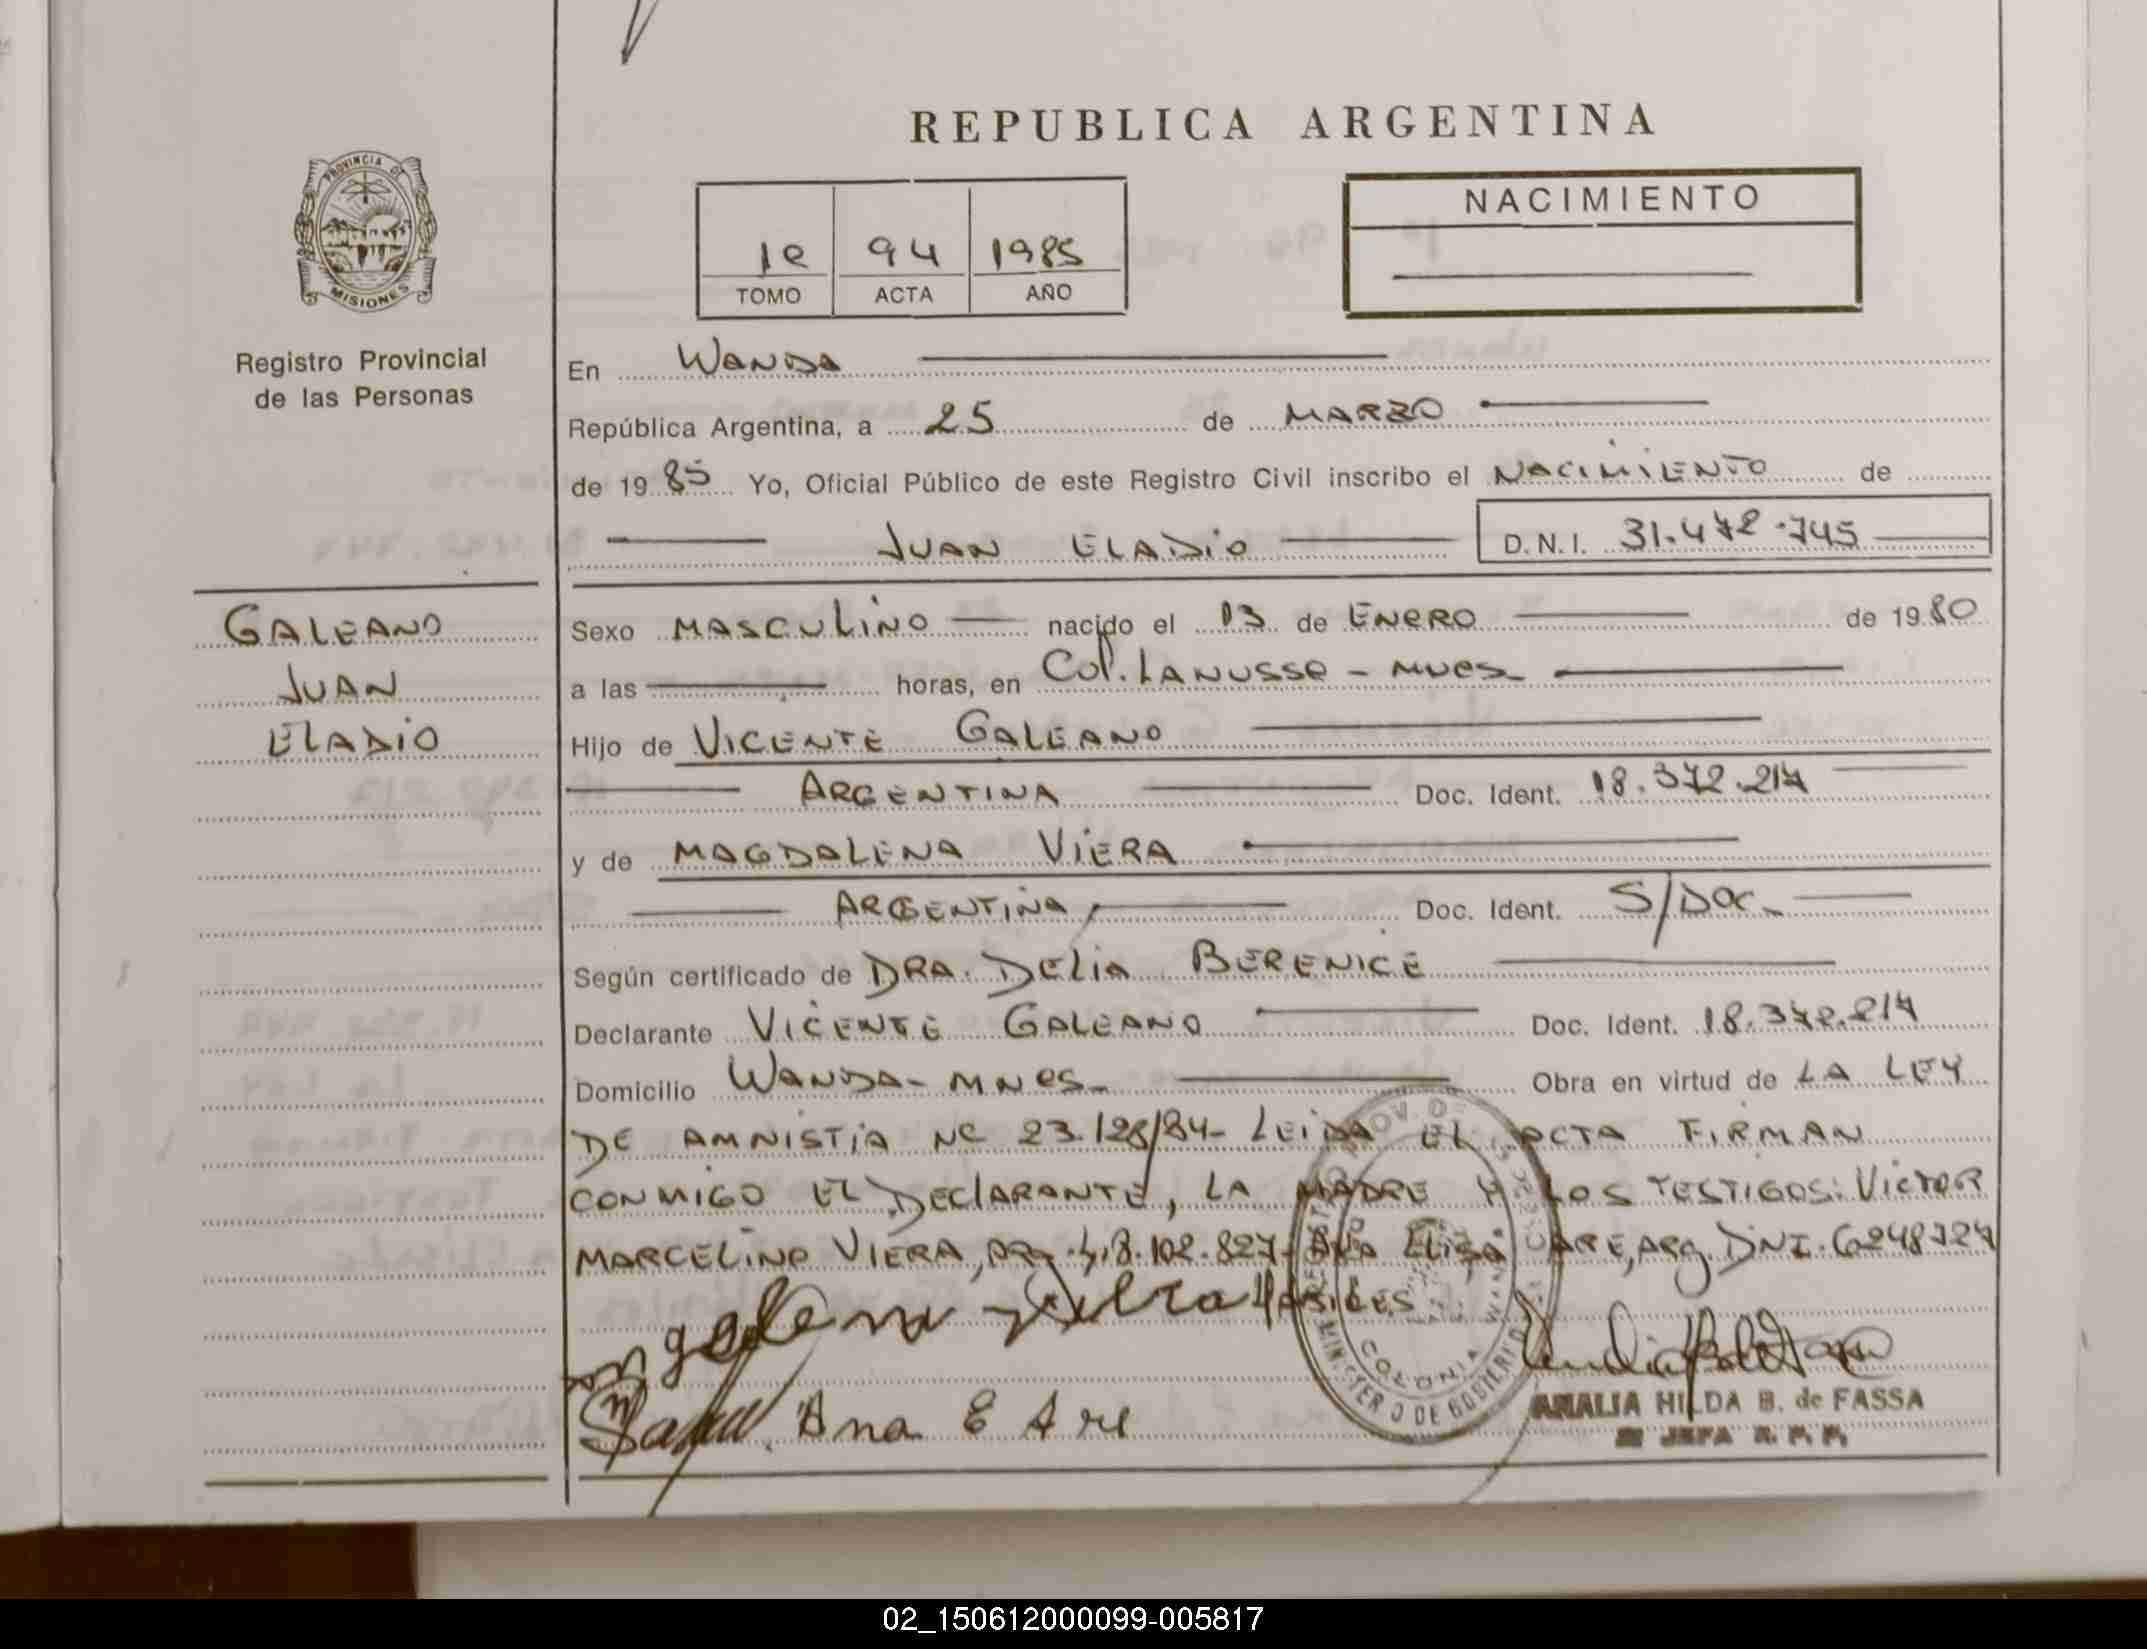 REPUBLICA ARGENTINA
PROVINCIA DE
MISIONES
Registro Provincial
de las Personas
1e 94 1985
TOMO ACTA AÑO
NACIMIENTO
En Wanda
República Argentina, a 25 de MARZO
de 1985 Yo, Oficial Público de este Registro Civil inscribo el NACIMIENTO de
JUAN ELADIO D.N.I. 31.472.745
GALEANO
JUAN
ELADIO
Sexo MASCULINO nacido el 13 de ENERO de 1980
a las horas, en Col. LANUSSE - Mnes
Hijo de VICENTE GALEANO
ARGENTINA Doc. Ident. 18.372.217
y de MAGDALENA VIERA
ARGENTINA Doc. Ident. S/Doc.
Según certificado de DRA. DELIA BERENICE
Declarante VICENTE GALEANO Doc. Ident. 18.372.217
Domicilio WANDA - MNES Obra en virtud de LA LEY
DE AMNISTIA Nº 23.128/84- LEIDA EL ACTA FIRMAN
CONMIGO EL DECLARANTE, LA MADRE Y LOS TESTIGOS: VICTOR
MARCELINO VIERA, ARG. 18.102.827 - Ana Elisa ARE, ARg. DNI. 6248727
HABILES
Ana E Are
COLONIA WANDA
MINISTERIO DE GOBIERNO
ANALIA HILDA B. de FASSA
JEFA R. P. P.
02_150612000099-005817